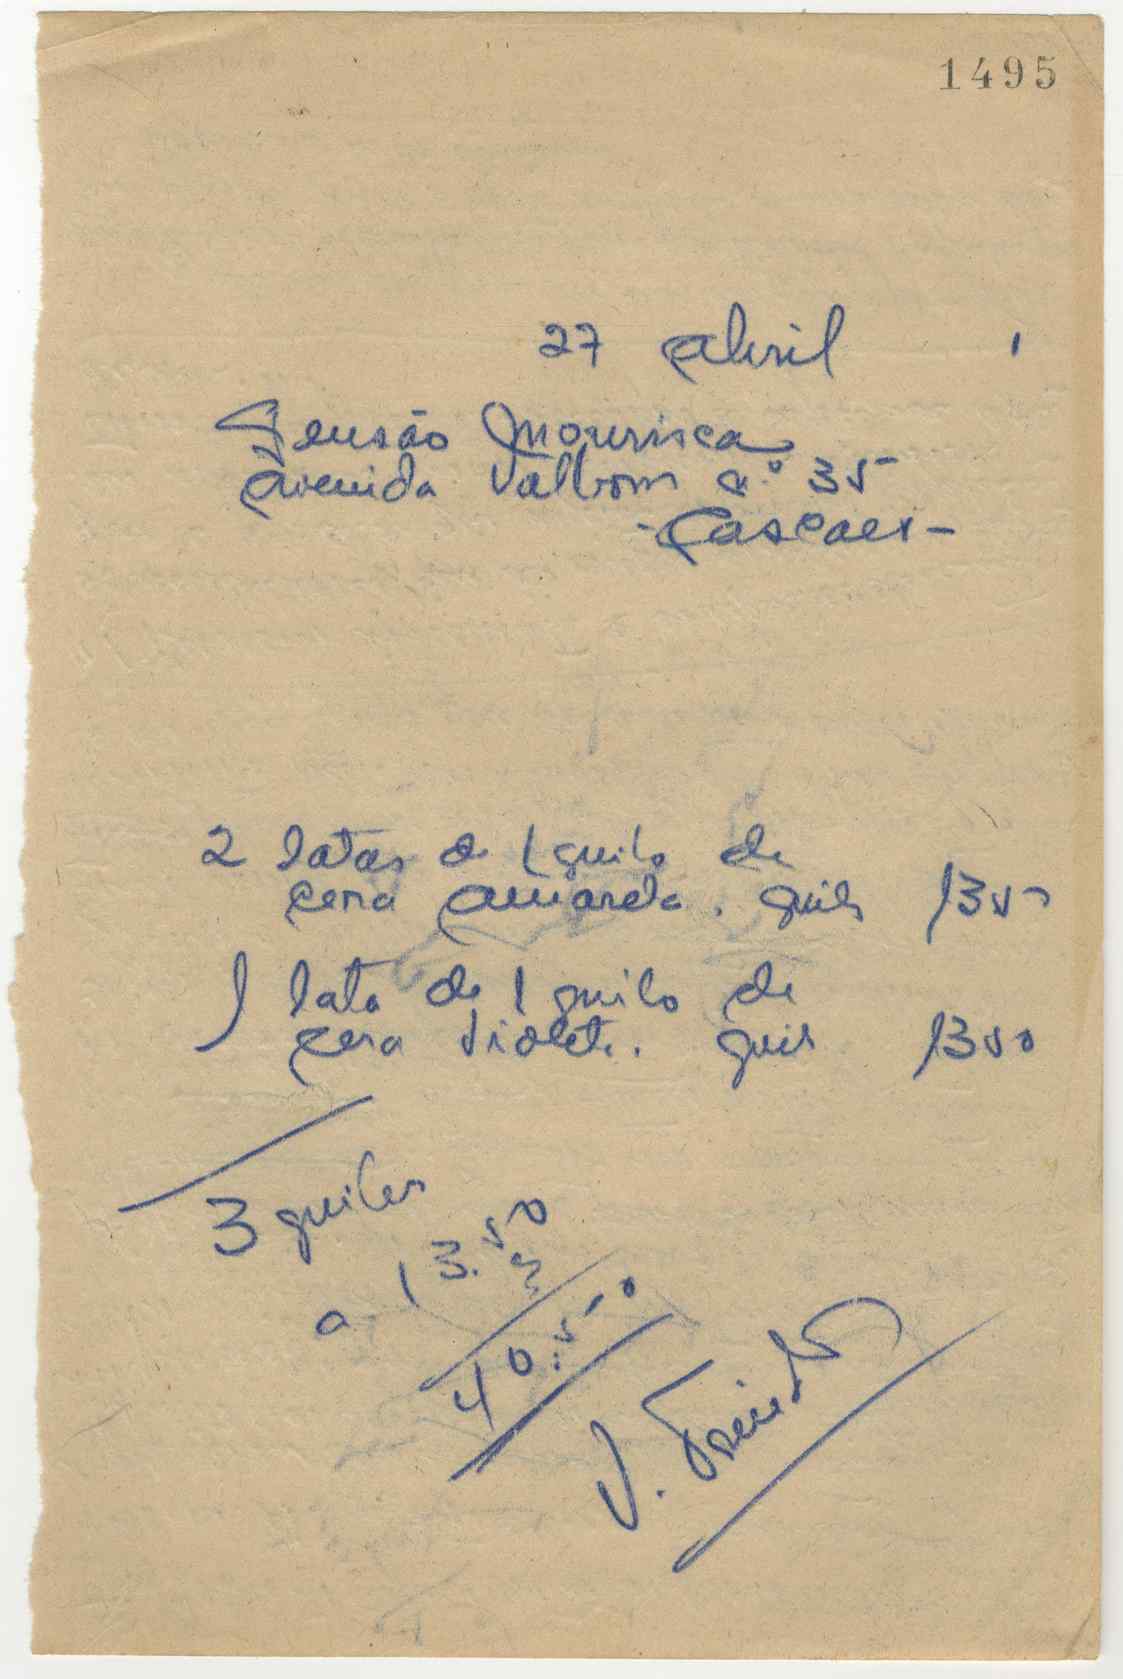 1495
27 Abril
Pensão Mourisca
Avenida Valbom n.º 35
- Cascaes -
2 latas de 1 quilo de
cera amarela. quilo 1350
1 lata de 1 quilo de
cera violeta. quilo 1350
3 quilos
a 13.50
3
40.50
J.